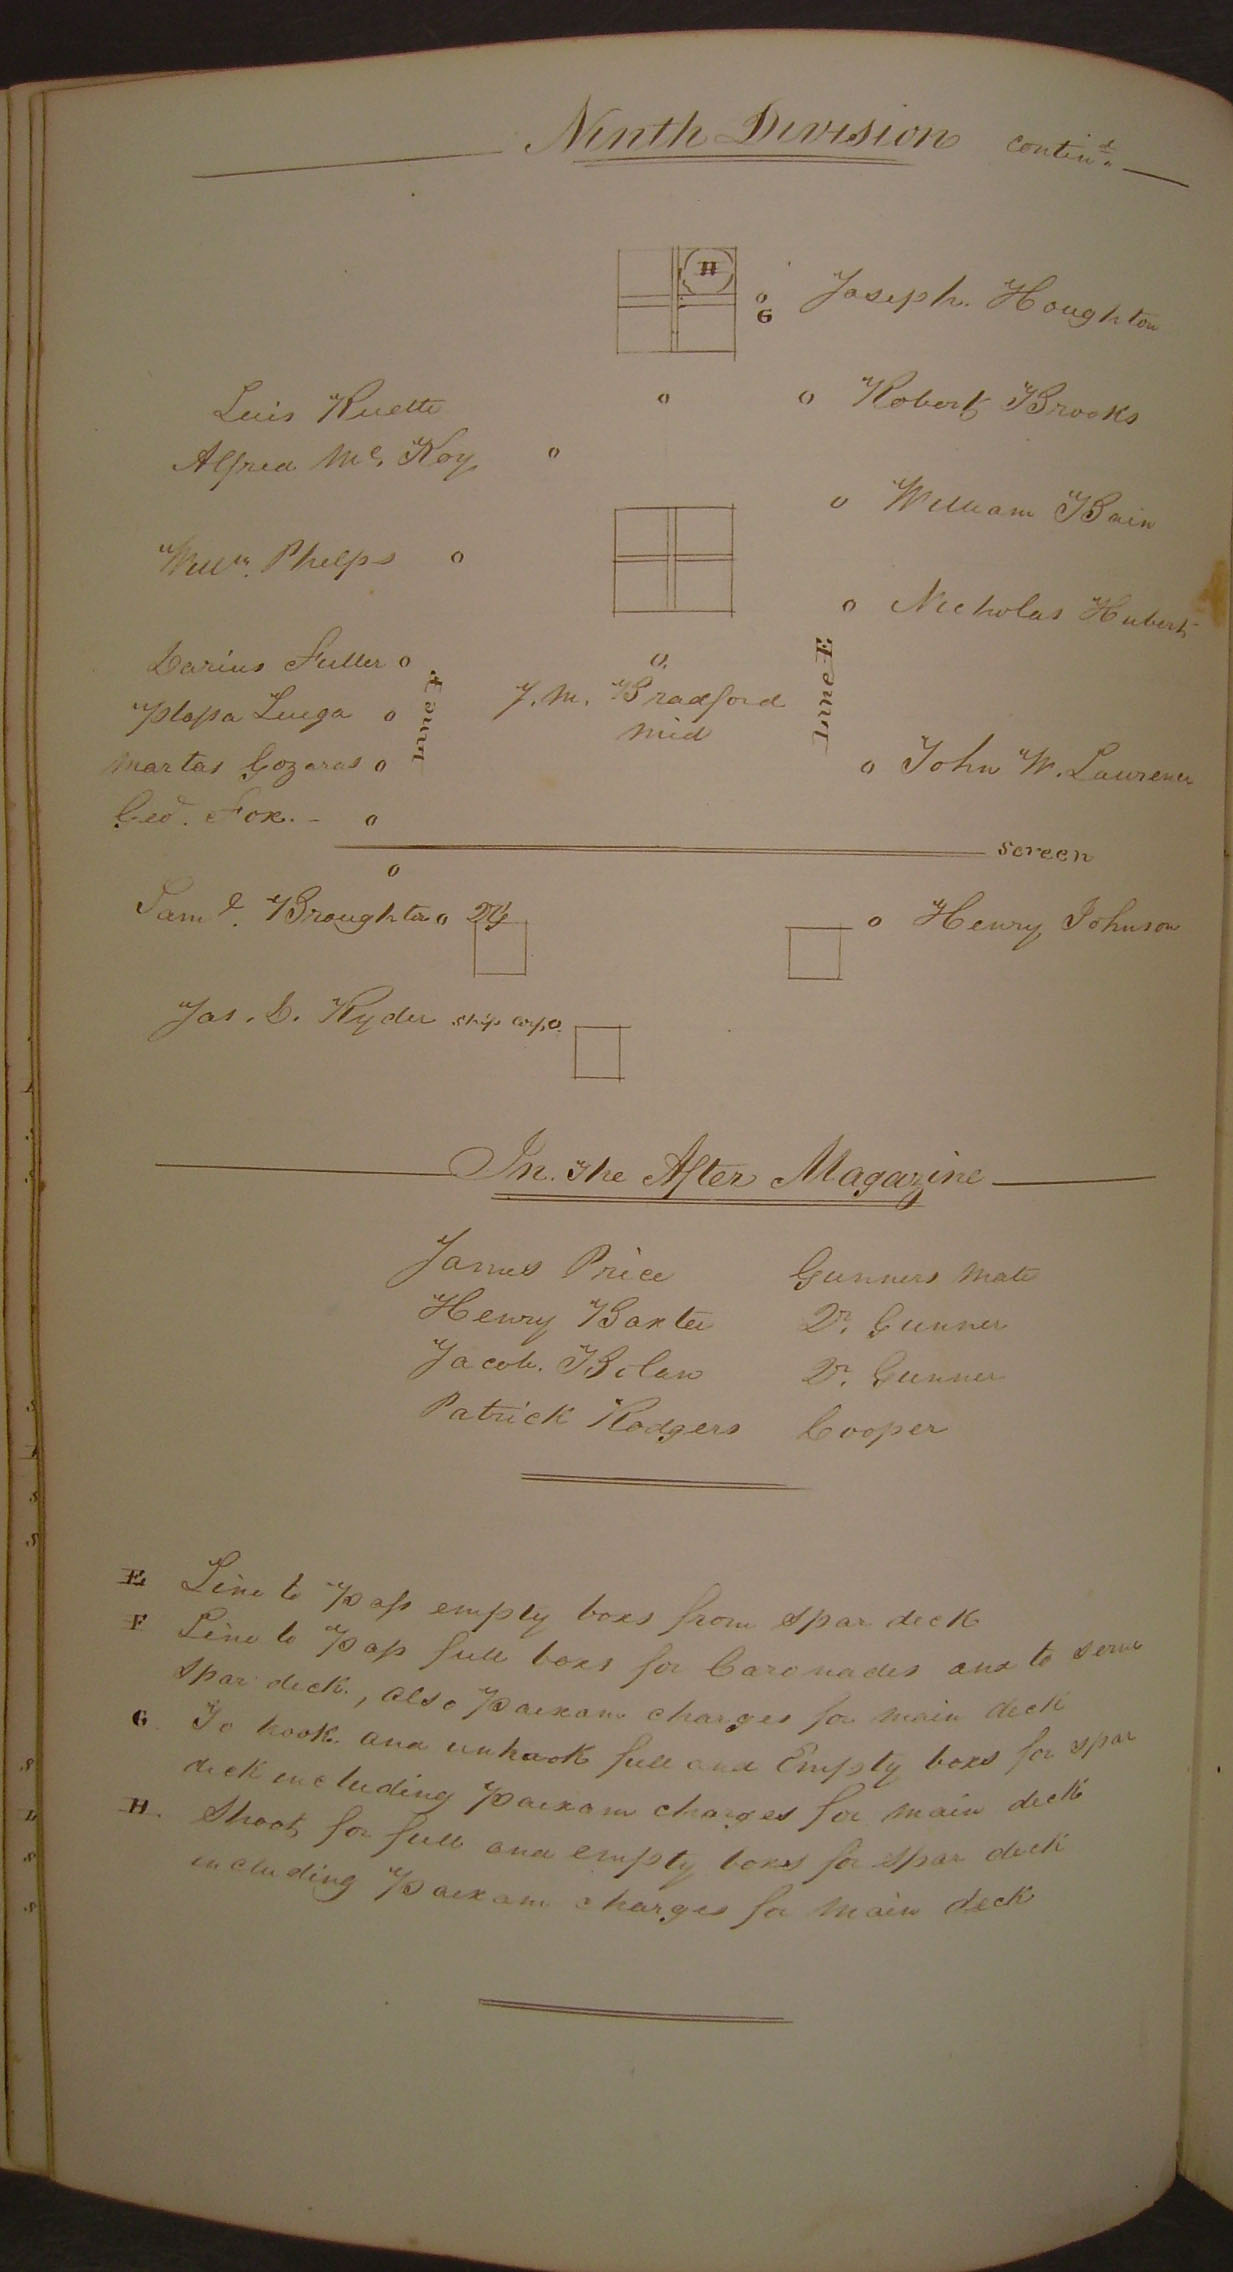 Ninth Division contin.d
H
G Joseph. Houghton
Luis Ruette
Robert Brooks
Alfred Mc. Koy
William Bain
Willm. Phelps
Nicholas Hubert
Darius Fuller
Line F
Line E
J. M. Bradford
Mid
Luega
Martas Gozaras
John W. Laurence
Geo. Fox.
screen
Saml. Broughton
Henry Johnson
Jas. D. Ryder ship corp.
In. The After Magazine
James Price Gunners Mate
Henry Baxter Qr. Gunner
Jacob. Bolan Qr. Gunner
Patrick Rodgers Cooper
E Line to Pass empty boxs from spar deck
F Line to Pass full boxs for Caronades and to serve
spar deck, also Paixam charges for main deck
G. To hook and unhook full and Empty boxs for spar
deck including Paixam charges for main deck
H. Shoot for full and empty boxes for spar deck
including Paixam charges for Main deck